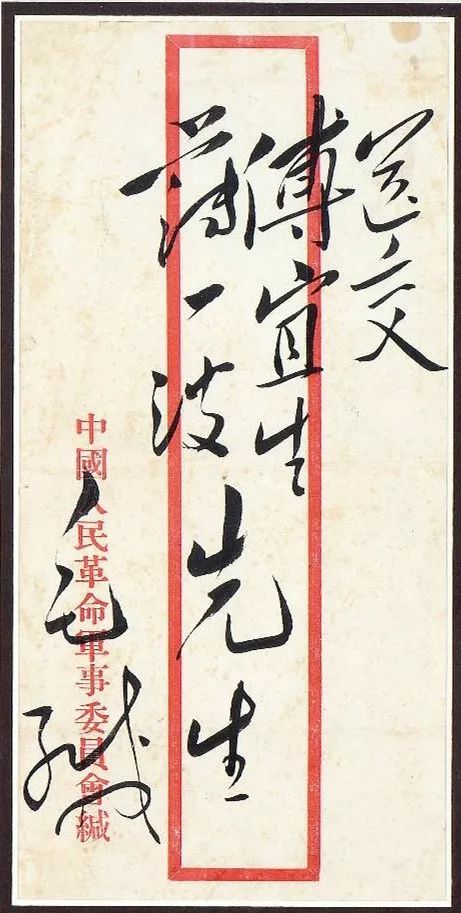 送交
傅宜生
薄一波先生
毛缄
中國人民革命軍事委員會緘